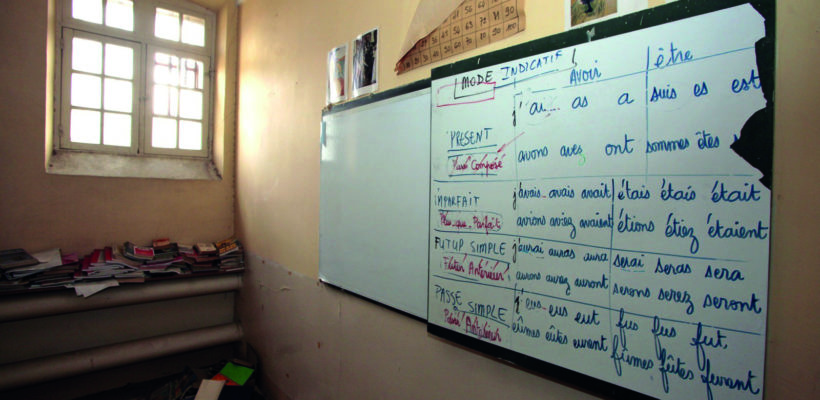 MODE INDICATIF
Avoir être
j'ai as a suis es est
PRÉSENT
avons avez ont sommes êtes
Passé Composé
IMPARFAIT
j'avais avais avait étais étais était
Plus-que-Parfait
avions aviez avaient étions étiez étaient
FUTUR SIMPLE
j'aurai auras aura serai seras sera
Futur Antérieur
aurons aurez auront serons serez seront
PASSÉ SIMPLE
j'eus eus eut fus fus fut
Passé Antérieur
eûmes eûtes eurent fûmes fûtes furent